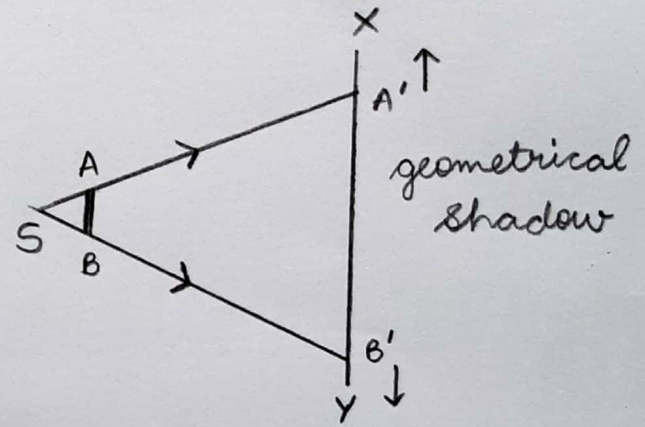 X
A'
A
geometrical
shadow
S
B
B'
Y